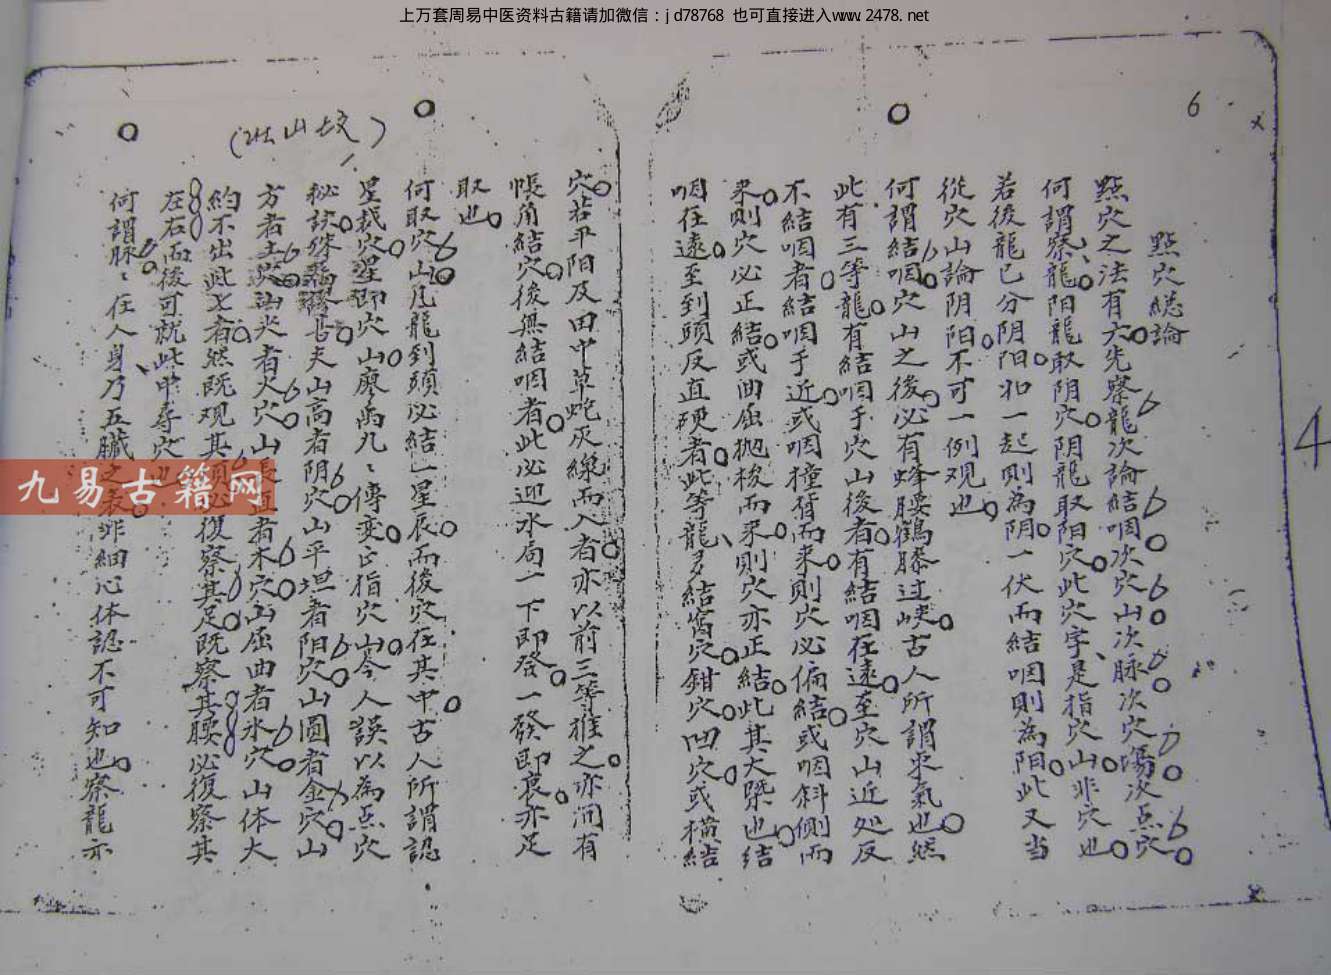 上万套周易中医资料古籍请加微信：jd78768 也可直接进入www.2478.net
6
點穴総論
點穴之法有六先察龍次論結咽次穴山次脉次穴場次点穴
何謂察龍阳龍取阴穴阴龍取阳穴此穴字是指穴山非穴也
若後龍已分阴阳非一起則為阴一伏而結咽則為阳此又当
從穴山論阴阳不可一例观也
何謂結咽穴山之後必有蜂腰鶴膝过峡古人所謂束氣也然
此有三等龍有結咽于穴山後者有結咽在遠至穴山近处反
不結咽者結咽于近或咽撞背而来則穴必偏結或咽斜側而
来則穴必正結或曲屈抛梭而来則穴亦正結此其大槩也結
咽在遠至到頭反直硬者此等龍多結窩穴鉗穴凹穴或横結
4
穴若平阳及田中草蛇灰線而入者亦以前三等推之亦间有
帳角結穴後無結咽者此必迎水局一下即發一發即衰亦足
取也
何取穴山凡龍到頭必結一星辰而後穴在其中古人所謂認
星裁穴星即穴山廖禹九〻傳变正指穴山今人誤以為点穴
秘訣 夫山高者阴穴山平坦者阳穴山圓者金穴山
方者土穴山尖者火穴山長直者木穴山屈曲者水穴山体大
約不出此七者然既观其頂必復察其足既察其腰必復察其
左右而後可就此中尋穴也
何謂脉〻在人身乃五臓之表非細心体認不可知也察龍亦
九易古籍网